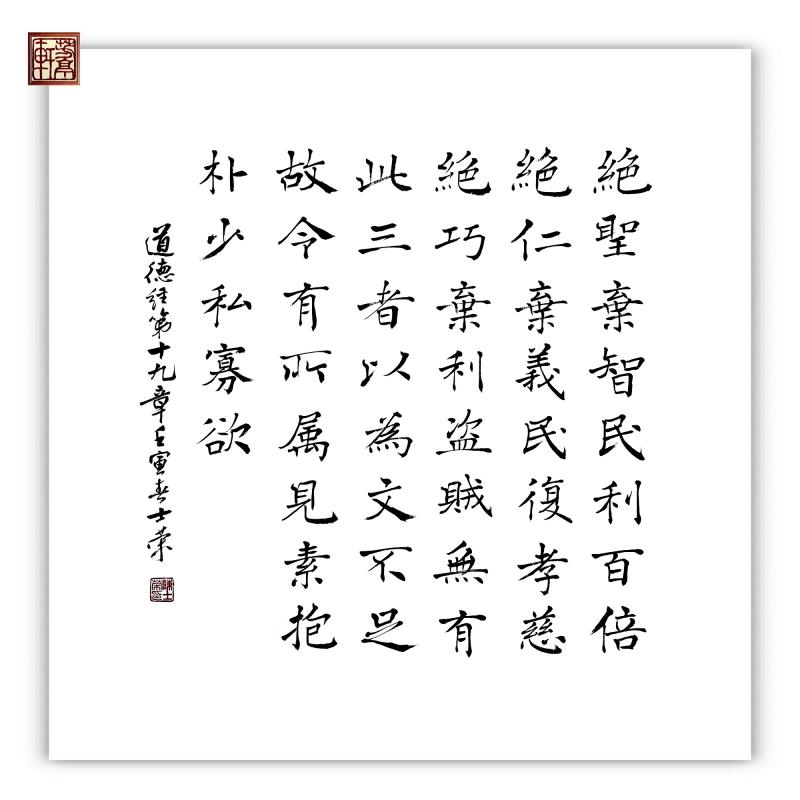 絕聖棄智民利百倍
絕仁棄義民復孝慈
絕巧棄利盜賊無有
此三者以為文不足
故令有所属見素抱
朴少私寡欲
道德経第十九章壬寅春士荣